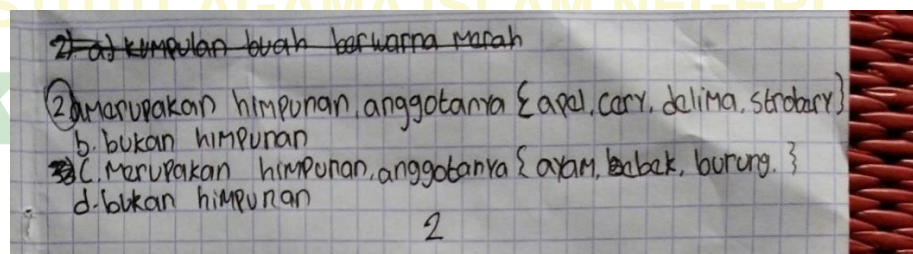 2) a) kumpulan buah berwarna Merah
2) a Merupakan himpunan, anggotanya {apel, cery, delima, strobery}
b. bukan himpunan
C. Merupakan himpunan, anggotanya {ayam, bebek, burung. }
d. bukan himpunan
2